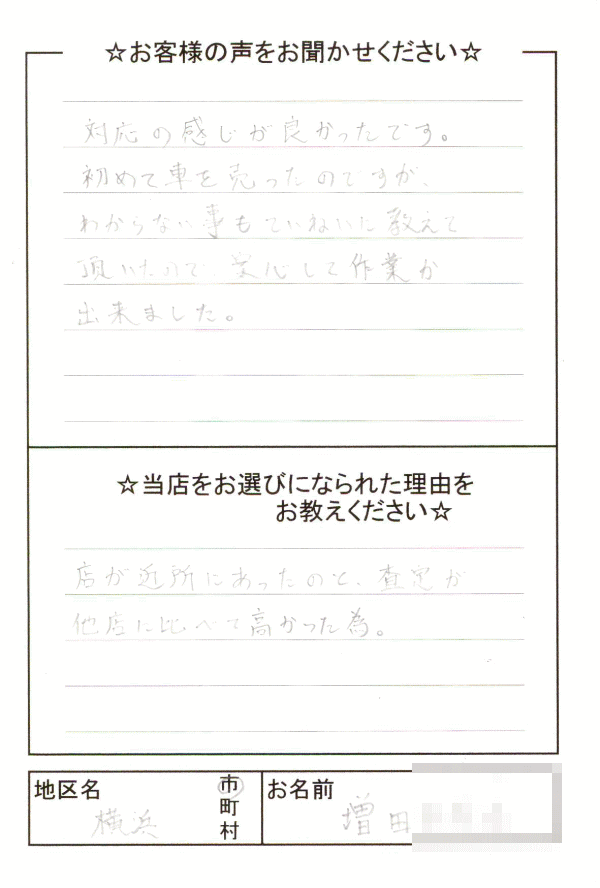 ☆お客様の声をお聞かせください☆
対応の感じが良かったです。
初めて車を売ったのですが、
わからない事もていねいに教えて
頂いたので、安心して作業が
出来ました。
☆当店をお選びになられた理由を
お教えください☆
店が近所にあったのと、査定が
他店に比べて高かった為。
地区名
横浜
市
町
村
お名前
増田